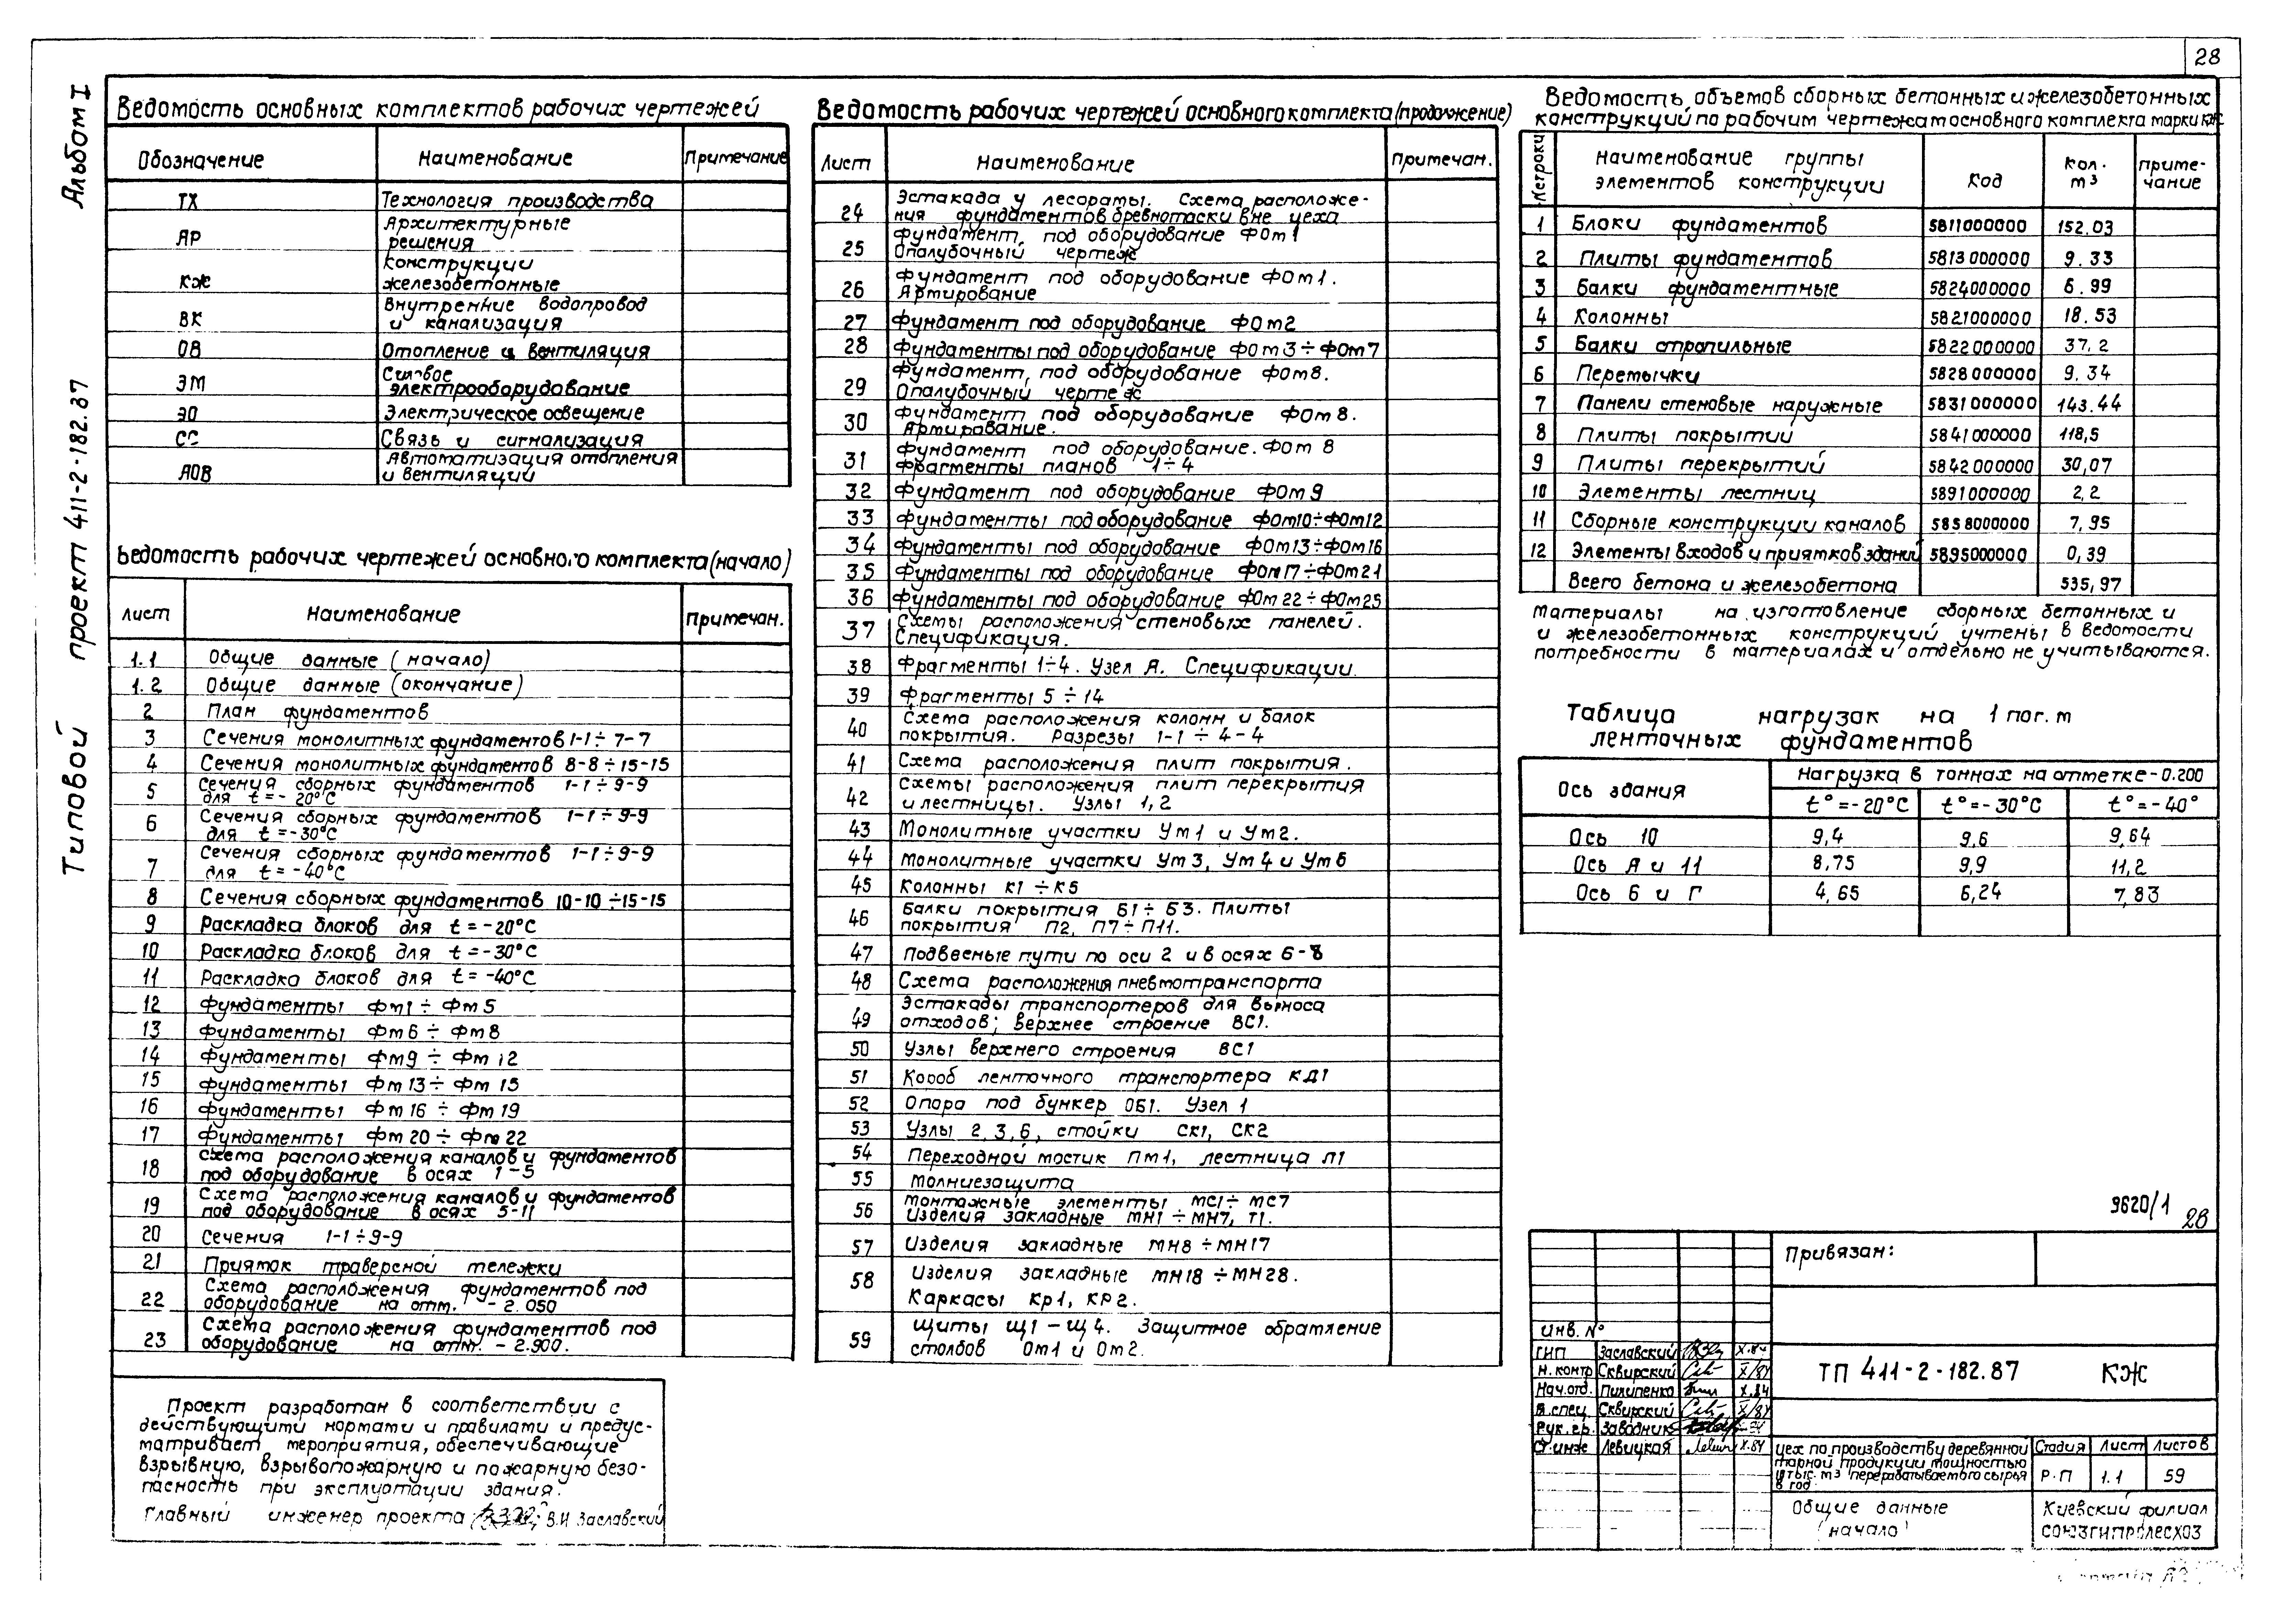 28
Альбом I
Типовой проект 411-2-182.87
Ведомость основных комплектов рабочих чертежей
Обозначение Наименование Примечание
ТХ Технология производства
АР Архитектурные
решения
КЖ Конструкции
железобетонные
ВК Внутренние водопровод
и канализация
ОВ Отопление и вентиляция
ЭМ Силовое
электрооборудование
ЭО Электрическое освещение
СС Связь и сигнализация
АОВ Автоматизация отопления
и вентиляции
Ведомость рабочих чертежей основного комплекта (начало)
Лист Наименование Примечан.
1.1 Общие данные (начало)
1.2 Общие данные (окончание)
2 План фундаментов
3 Сечения монолитных фундаментов 1-1÷7-7
4 Сечения монолитных фундаментов 8-8÷15-15
5 Сечения сборных фундаментов 1-1÷9-9
для t=-20°С
6 Сечения сборных фундаментов 1-1÷9-9
для t=-30°С
7 Сечения сборных фундаментов 1-1÷9-9
для t=-40°С
8 Сечения сборных фундаментов 10-10÷15-15
9 Раскладка блоков для t=-20°С
10 Раскладка блоков для t=-30°С
11 Раскладка блоков для t=-40°С
12 Фундаменты Фм1÷Фм5
13 Фундаменты Фм6÷Фм8
14 Фундаменты Фм9÷Фм12
15 Фундаменты Фм13÷Фм15
16 Фундаменты Фм16÷Фм19
17 Фундаменты Фм20÷Фм22
18 Схема расположения каналов и фундаментов
под оборудование в осях 1-5
19 Схема расположения каналов и фундаментов
под оборудование в осях 5-11
20 Сечения 1-1÷9-9
21 Приямок траверсной тележки
22 Схема расположения фундаментов под
оборудование на отм. -2.050
23 Схема расположения фундаментов под
оборудование на отм. -2.900.
Проект разработан в соответствии с
действующими нормами и правилами и предус-
матривает мероприятия, обеспечивающие
взрывную, взрывопожарную и пожарную безо-
пасность при эксплуатации здания.
Главный инженер проекта В.И Заславский
Ведомость рабочих чертежей основного комплекта (продолжение)
Лист Наименование Примечан.
24 Эстакада у лесорамы. Схема расположе-
ния фундаментов бревнотаски вне цеха
25 Фундамент под оборудование ФОм1
Опалубочный чертеж
26 Фундамент под оборудование ФОм1.
Армирование
27 Фундамент под оборудование ФОм2
28 Фундаменты под оборудование ФОм3÷ФОм7
29 Фундамент под оборудование ФОм8.
Опалубочный чертеж
30 Фундамент под оборудование ФОм8.
Армирование.
31 Фундамент под оборудование. ФОм8
Фрагменты планов 1÷4
32 Фундамент под оборудование ФОм9
33 Фундаменты под оборудование ФОм10÷ФОм12
34 Фундаменты под оборудование ФОм13÷ФОм16
35 Фундаменты под оборудование ФОм17÷ФОм21
36 Фундаменты под оборудование ФОм22÷ФОм25
37 Схемы расположения стеновых панелей.
Спецификация.
38 Фрагменты 1÷4. Узел А. Спецификации.
39 Фрагменты 5÷14
40 Схема расположения колонн и балок
покрытия. Разрезы 1-1÷4-4
41 Схема расположения плит покрытия.
42 Схемы расположения плит перекрытия
и лестницы. Узлы 1,2
43 Монолитные участки Ум1 и Ум2.
44 Монолитные участки Ум3, Ум4 и Ум5
45 Колонны К1÷К5
46 Балки покрытия Б1÷Б3. Плиты
покрытия П2, П7÷П11.
47 Подвесные пути по оси 2 и в осях 6-8
48 Схема расположения пневмотранспорта
49 Эстакады транспортеров для выноса
отходов; Верхнее строение ВС1.
50 Узлы верхнего строения ВС1
51 Короб ленточного транспортера КД1
52 Опора под бункер ОБ1. Узел 1
53 Узлы 2,3,6, стойки СК1, СК2
54 Переходной мостик Пм1, лестница Л1
55 Молниезащита
56 Монтажные элементы МС1÷МС7
Изделия закладные МН1÷МН7, Т1.
57 Изделия закладные МН8÷МН17
58 Изделия закладные МН18÷МН28.
Каркасы Кр1, КР2.
59 Щиты Щ1-Щ4. Защитное обрамление
столбов Ом1 и Ом2.
Ведомость объемов сборных бетонных и железобетонных
конструкций по рабочим чертежам основного комплекта марки КЖ
№строки Наименование группы
элементов конструкции Код Кол.
м³ Приме-
чание
1 Блоки фундаментов 5811000000 152.03
2 Плиты фундаментов 5813000000 9.33
3 Балки фундаментные 5824000000 6.99
4 Колонны 5821000000 18.53
5 Балки стропильные 5822000000 37.2
6 Перемычки 5828000000 9.34
7 Панели стеновые наружные 5831000000 143.44
8 Плиты покрытий 5841000000 118,5
9 Плиты перекрытий 5842000000 30,07
10 Элементы лестниц 5891000000 2,2
11 Сборные конструкции каналов 5858000000 7,95
12 Элементы входов и приямков зданий 5895000000 0,39
Всего бетона и железобетона 535,97
Материалы на изготовление сборных бетонных и
и железобетонных конструкций учтены в ведомости
потребности в материалах и отдельно не учитываются.
Таблица нагрузак на 1 пог. м
ленточных фундаментов
Ось здания Нагрузка в тоннах на отметке-0.200
t°=-20°С t°=-30°С t°=-40°
Ось 10 9,4 9,6 9,64
Ось А и 11 8,75 9,9 11,2
Ось Б и Г 4,65 6,24 7,83
9620/1 28
Привязан:
Инв. №
ГИП Заславский X.84
Н.контр Сквирский X/84
Нач.отд. Пилипенко X.84
Гл.спец Сквирский X/84
Рук.гр. Заводник
Ст.инж Левицкая X.84
ТП 411-2-182.87 КЖ
Цех по производству деревянной
тарной продукции мощностью
тыс. м3 перерабатываемого сырья
в год
Стадия Лист Листов
Р·П 1.1 59
Общие данные
(начало)
Киевский филиал
СОЮЗГИПРОЛЕСХОЗ